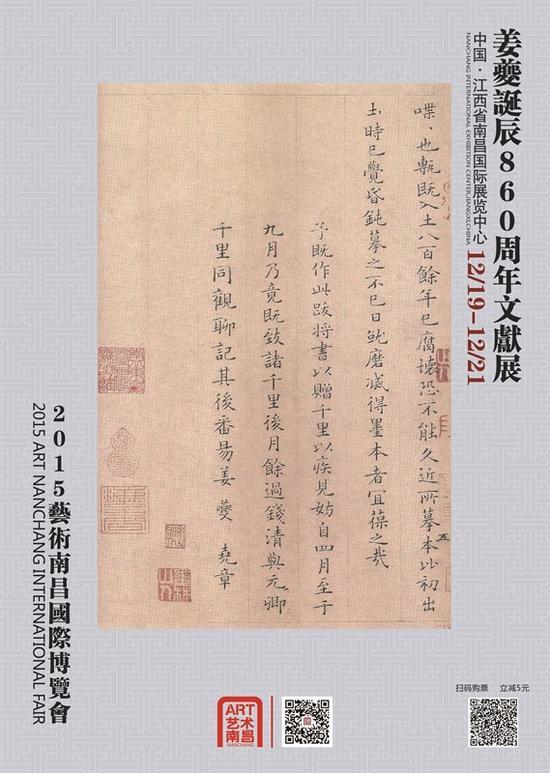 姜夔誕辰860周年文獻展
中国·江西省南昌国际展览中心 12/19-12/21
NANCHANG INTERNATIONAL EXHIBITION CENTER,JIANGXI,CHINA
喋、也甎既入土八百餘年已腐壞恐不能久近所摹本比初出
土時已覺昏鈍摹之不已日就磨滅得墨本者宜葆之哉
予既作此跋将書以贈千里以疾見妨自四月至于
九月乃竟既致諸千里後月餘過錢清與元卿
千里同觀聊記其後番昜姜夔 堯章
2015藝術南昌國際博覽會
2015 ART NANCHANG INTERNATIONAL FAIR
扫码购票 立减5元
ART
艺术
南昌
NANCHANG